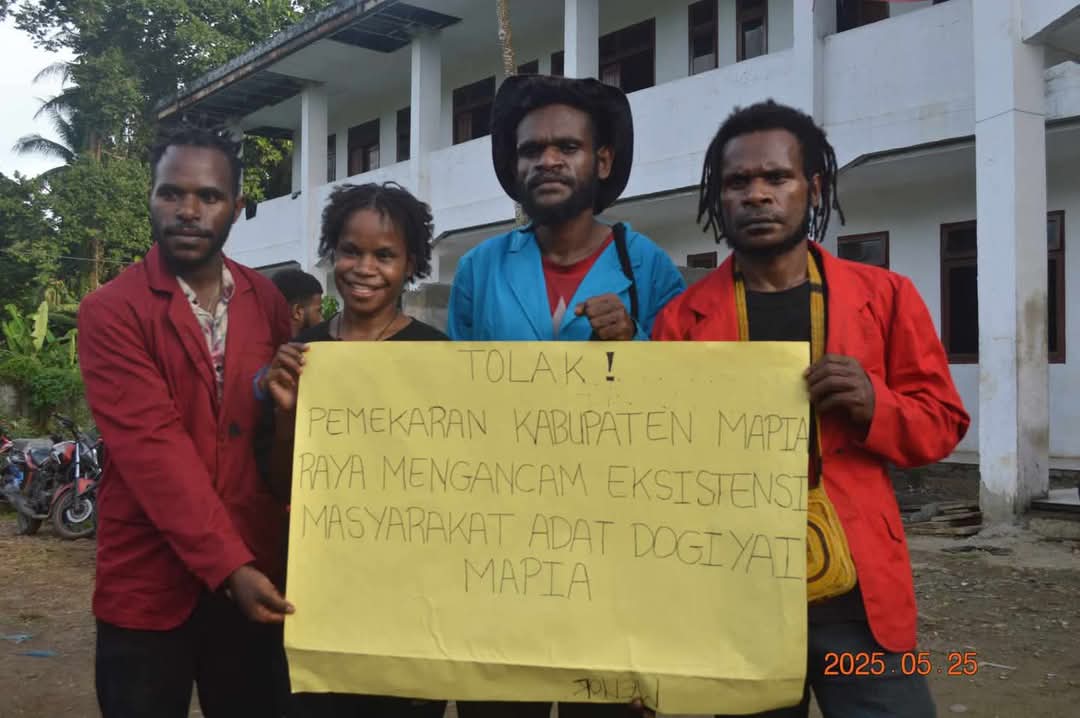 TOLAK !
PEMEKARAN KABUPATEN MAPIA
RAYA MENGANCAM EKSISTENSI
MASYARAKAT ADAT DOGIYAI
MAPIA
2025.05.25